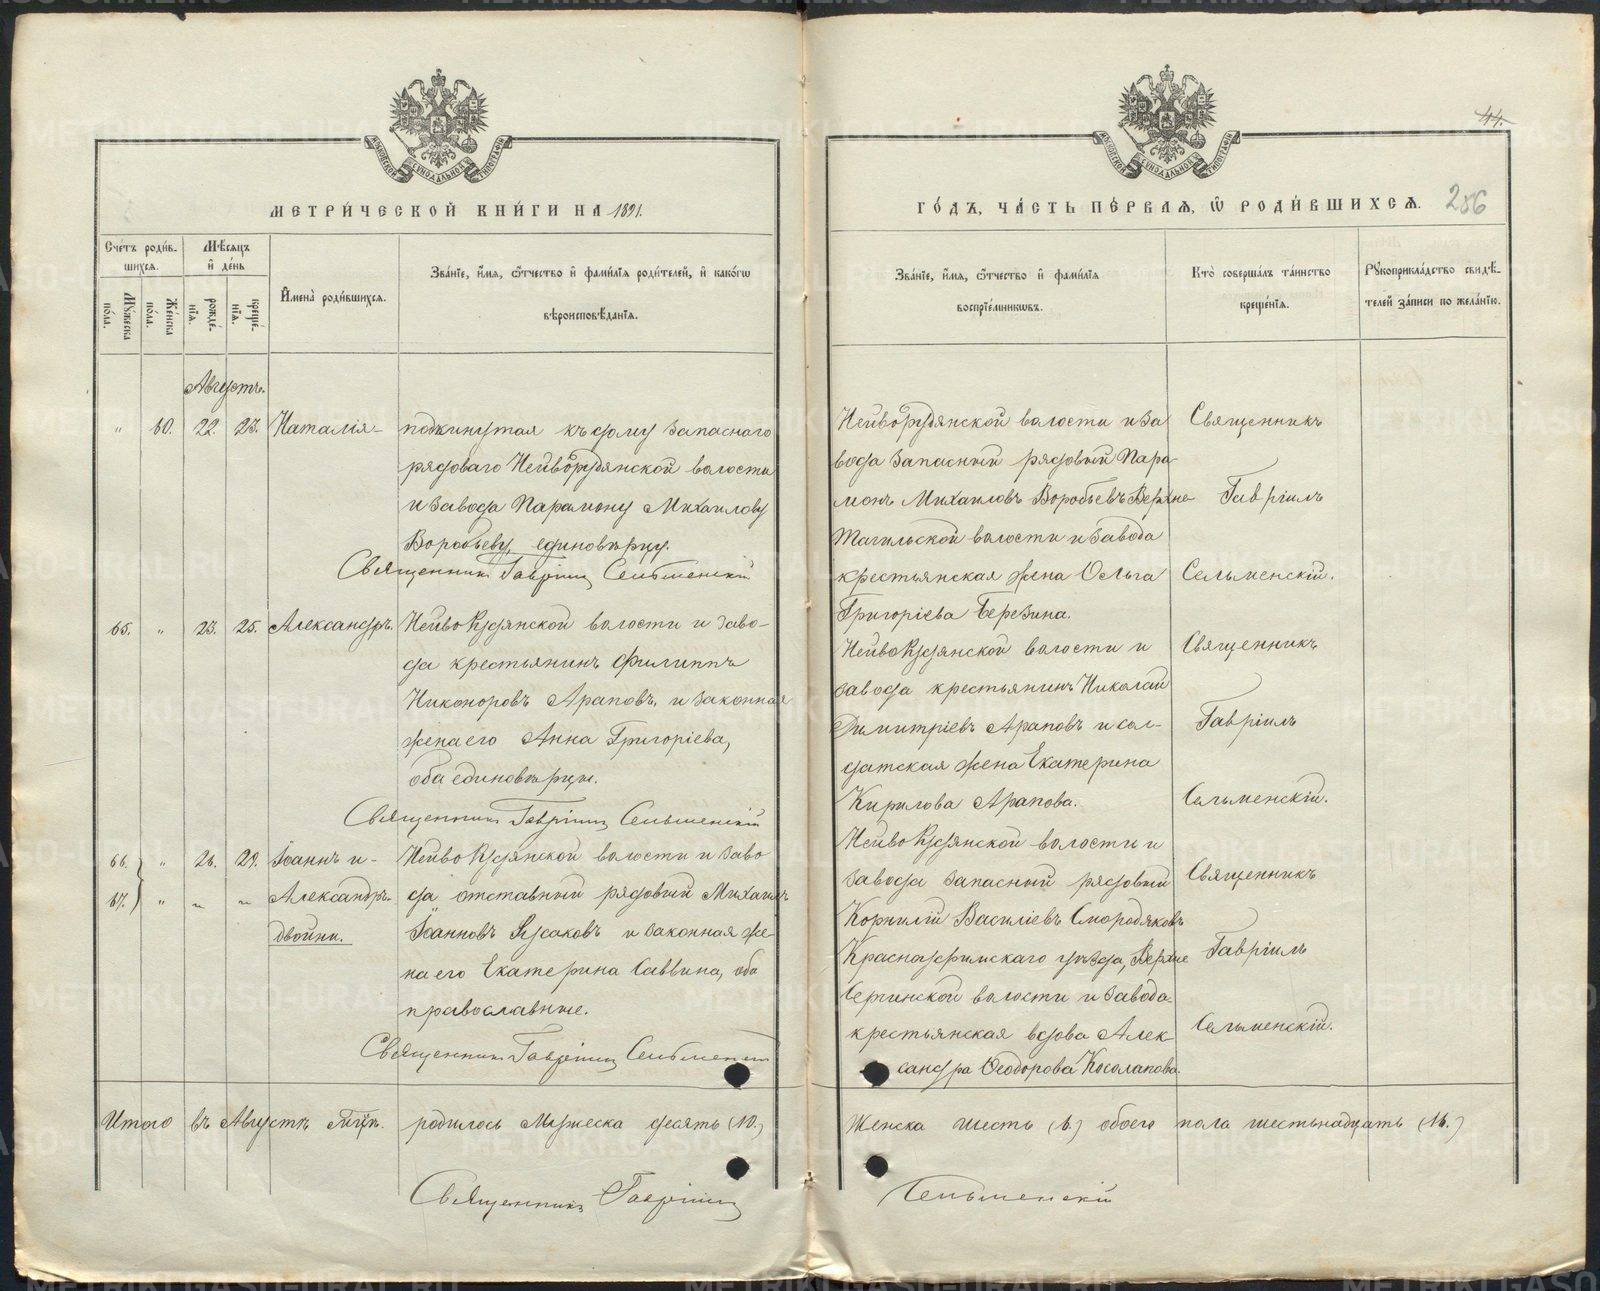 44.
МЕТРИЧЕСКОЙ КНИГИ НА 1891.
ГОДЪ, ЧАСТЬ ПЕРВАЯ, Ѡ РОДИВШИХСЯ.
256
Счетъ родив-
шихся.
Мѣсяцъ
и день
Мꙋжеска
пола.
Женска
пола.
рожде-
нїя.
креще-
нїя.
Имена родившихся.
Званїе, имя, ѿчество и фамилїя родителей, и какогѡ
вѣроисповѣданїя.
Званїе, имя, ѿчество и фамилїя
воспрїемникѡвъ.
Кто совершалъ таинство
крещенїя.
Рꙋкоприкладство свидѣ-
телей записи по желанїю.
Августъ.
" 60. 22. 23. Наталія-
подкинутая къ дому запаснаго
рядоваго Нейворудянской волости
и завода Парамону Михаилову
Воробьеву, единовѣрцу.
Священникъ Гавріилъ Сельменскій
Нейворудянской волости и за
вода запасный рядовый Пара-
монъ Михаиловъ Воробьевъ Верхне
Тагильской волости и завода
крестьянская жена Ольга
Григоріева Березина.
Священникъ
Гавріилъ
Сельменскій.
65. " 23. 25. Александръ.
Нейворудянской волости и заво-
да крестьянинъ Филиппъ
Никоноровъ Араповъ, и законная
жена его Анна Григоріева,
оба единовѣрцы.
Священникъ Гавріилъ Сельменскій
Нейворудянской волости и
завода крестьянинъ Николай
Димитріевъ Араповъ и сол-
датская жена Екатерина
Кирилова Арапова.
Священникъ
Гавріилъ
Сельменскій.
66. " 26. 29. Іоаннъ и -
67. " " " Александръ.
двойни.
Нейворудянской волости и заво
да отставный рядовый Михаилъ
Іоанновъ Русаковъ и законная же-
на его Екатерина Саввина, оба
православные.
Священникъ Гавріилъ Сельменскій
Нейворудянской волости и
завода запасный рядовый
Корнилій Василіевъ Смородяковъ
Красноуфимскаго уѣзда, Верхне
Сергинской волости и завода
крестьянская вдова Алек
сандра Ѳеодорова Косолапова.
Священникъ
Гавріилъ
Сельменскій.
Итого въ Августѣ м-цѣ. родилось Мужеска десять (10.)
Женска шесть (6.) обоего пола шестьнадцать (16.)
Священникъ Гавріилъ
Сельменскій